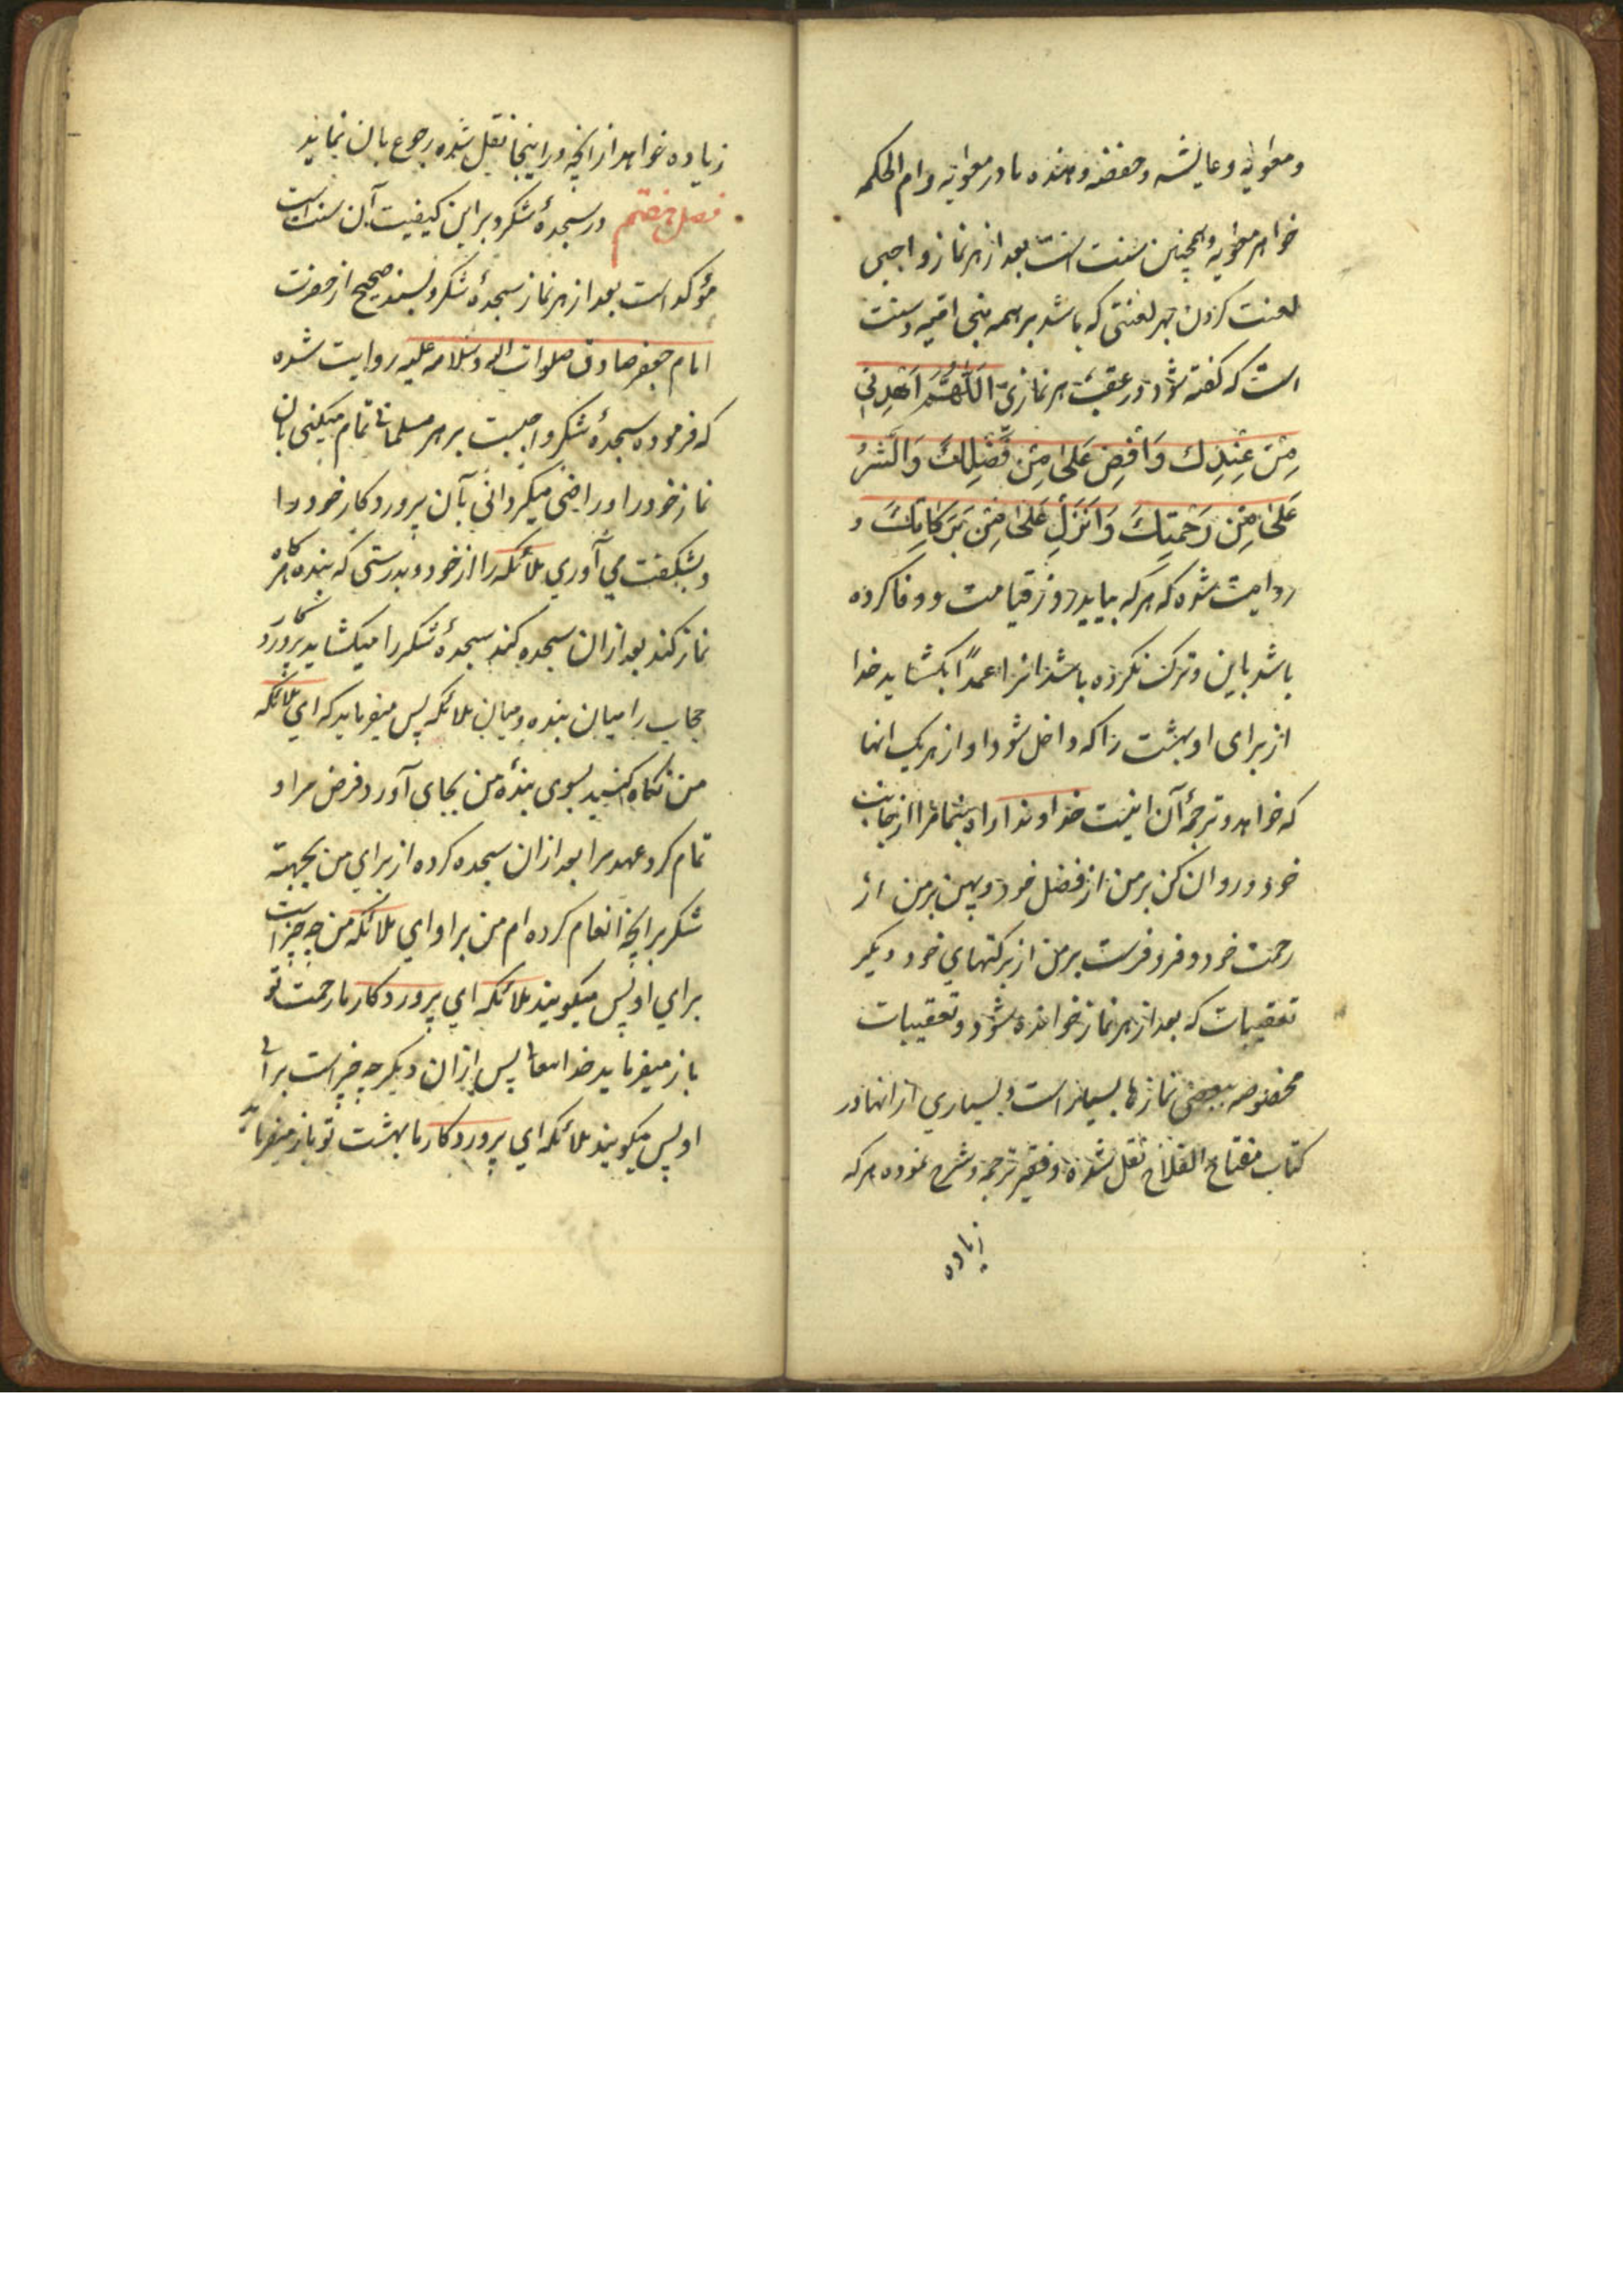 و معویه و عایشه و حفضه و هنده مادر معویه و ام الحکمه
خواهر معویه و همچنین سنت است بعد از هر نماز واجبی
لعنت کردن بهر لعنتی که باشد بر همه بنی امیه و سنت
است که گفته شود در عقب هر نمازی اَللّهُمَّ اهْدِنِي
مِنْ عِنْدِكَ وَاَفِضْ عَلَىَّ مِنْ فَضْلِكَ وَانْشُرْ
عَلَىَّ مِنْ رَحْمَتِكَ وَاَنْزِلْ عَلَىَّ مِنْ بَرَكَاتِكَ و
روایت شده که هر که بیاید روز قیامت و وفا کرده
باشد باین و ترک نکرده باشد انرا عمداً بکشاید خدا
از برای او بهشت را که داخل شود او از هر یک انها
که خواهد و ترجمهٔ آن اینست خداوندا راه بنما مرا از جانب
خود و روان کن بر من از فضل خود و پهن بر من از
رحمت خود و فرو فرست بر من از برکتهای خود دیگر
تعقیبات که بعد از هر نماز خوانده شود و تعقیبات
مخصوصه ببعضی نمازها بسیار است و بسیاری از انها در
کتاب مفتاح الفلاح نقل شده و فقیر ترجمه و شرح نموده هر که
زیاده
زیاده خواهد از انچه در اینجا نقل شده رجوع بان نماید
فصل هفتم در سجدهٔ شکر و بر این کیفیت آن سنت است
مؤکد است بعد از هر نماز سجدهٔ شکر و بسند صحیح از حضرت
امام جعفر صادق صلوات الله و سلامه علیه روایت شده
که فرموده سجدهٔ شکر واجبست بر هر مسلمانی تمام میکنی بان
نماز خود را و راضی میکردانی بآن پروردکار خود را
و بشکفت می آوری ملائکه را از خود و بدرستی که بنده هرکاه
نماز کند بعد از ان سجده کند سجدهٔ شکر را میکشاید پروردکار
حجاب را میان بنده و میان ملائکه پس میفرماید که ای ملائکه
من نکاه کنید بسوی بندهٔ من بجای آورد فرض مرا و
تمام کرد عهد مرا بعد از ان سجده کرده از برای من بجهة
شکر بر انچه انعام کرده ام من بر او ای ملائکه من چه چیز است
برای او پس میکویند ملائکه ای پروردکار ما رحمت تو
باز میفرماید خدایتعالی پس از ان دیکر چه چیز است برای
او پس میکویند ملائکه ای پروردکار ما بهشت تو باز میفرماید